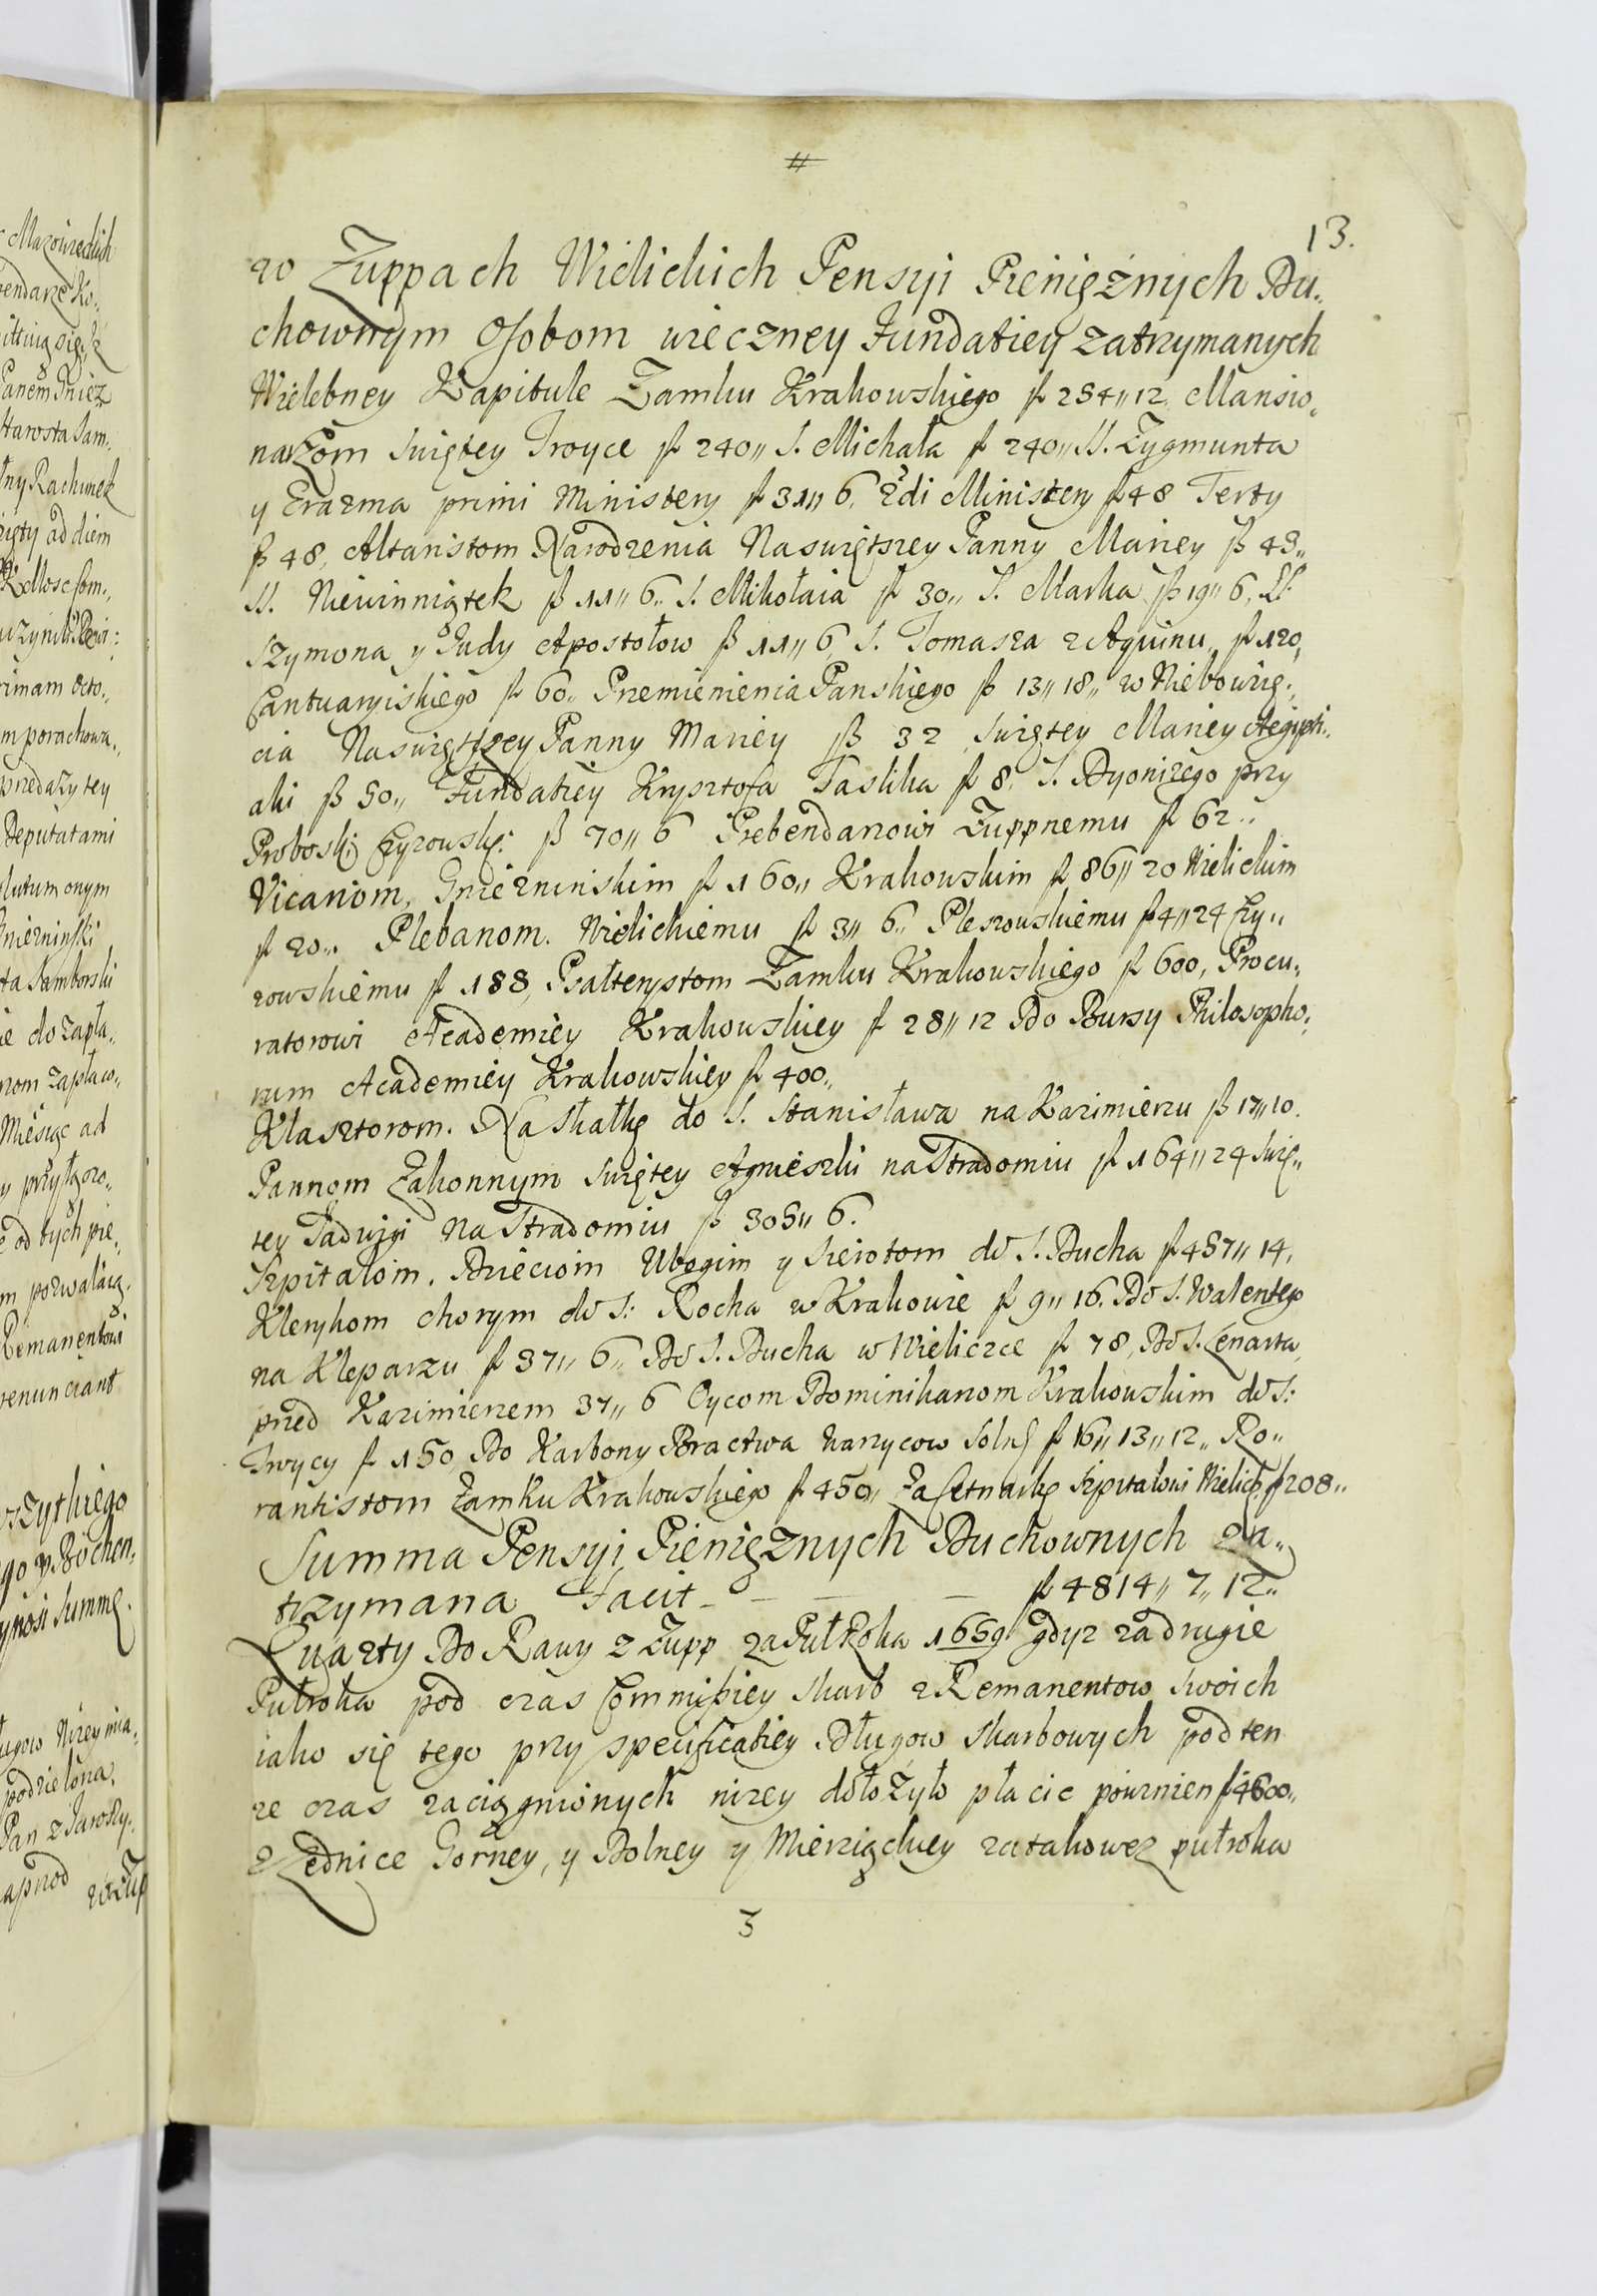 13.
w Zuppach Wielickich Pensyi Pieniężnych Du„
chownym Osobom wieczney Fundatiey zatrzymanych
Wielebney Kapitule Zamku Krakowskiego fl 254„ 12 Mansio„
narzom Swiętey Troyce fl 240„ S. Michała fl 240„ SS. Zygmunta
y Erazma primi Ministery fl 31„ 6. 2di Ministery fl 48 Terty
fl 48, Altaristom Narodzenia Naswiętszey Panny Mariey fl 43„
SS. Niewinniątek fl 11„ 6„ S. Mikołaia fl 30„ S. Marka fl 19„ 6, SS.
Szymona y Judy Apostołow fl 11„ 6, S. Tomasza z Aquinu, fl 120,
Cantuaryiskiego fl 60„ Przemienienia Panskiego fl 13„ 18„ w Niebowzię„
cia Naswiętszey Panny Mariey fl 32 Swiętey Mariey Aegypti„
aki fl 50„ Fundatiey Krysztofa Paslika fl 8. S. Dyonizego przy
Probosk: Czyzowsk: fl 70„ 6 Prebendarzowi Zuppnemu fl 62„
Vicariom, Gniezninskim fl 160„ Krakowskim fl 86„ 20 Wielickim
fl 20„ Plebanom. Wielickiemu fl 3„ 6„ Pleszowskiemu fl 4„ 24 Czy„
zowskiemu fl 188, Psałterystom Zamku Krakowskiego fl 600, Procu„
ratorowi Academiey Krakowskiey fl 28„ 12 Do Bursy Philosopho„
rum Academiey Krakowskiey fl 400„
Klasztorom. Na Skałkę do S. Stanisława na Kazimierzu fl 17„ 10.
Pannom Zakonnym Swiętey Agnieszki na Stradomiu fl 164„ 24 Swię„
tey Jadwigi Na Stradomiu fl 305„ 6.
Szpitalom. Dzieciom Ubogim y Sierotom do S. Ducha fl 457„ 14,
Klerykom chorym do S: Rocha w Krakowie fl 9„ 16. Do S. Walentego
na Kleparzu fl 37„ 6„ Do S. Ducha w Wieliczce fl 78, Do S. Lenarta
pred Kazimierzem 37„ 6 Oycom Dominikanom Krakowskim do S:
Troycy fl 150 Do Karbony Bractwa Warzycow Solnẏ fl 16„ 13„ 12„ Ro„
rantistom Zamku Krakowskiego fl 450„ Za Cetnarkę Szpitalowi Wielicḳ. fl 208„
Summa Pensyi Pieniężnych Duchownych za„
trzymana Facit - - - - fl 4814„ 7„ 12„
Quarty Do Rawy z Zupp za Puł Roka 1659. gdyz za drugie
Pułroka pod czas Commissiey Skarb z Remanentow Swoich
iako się tego przy specificatiey Długow Skarbowych pod ten
ze czas zaciągnionych nizey dołozyło płacic powinien fl 4600„
z Zednice Gorney, y Dolney y Mierziączkey zatakowez pułroka
3